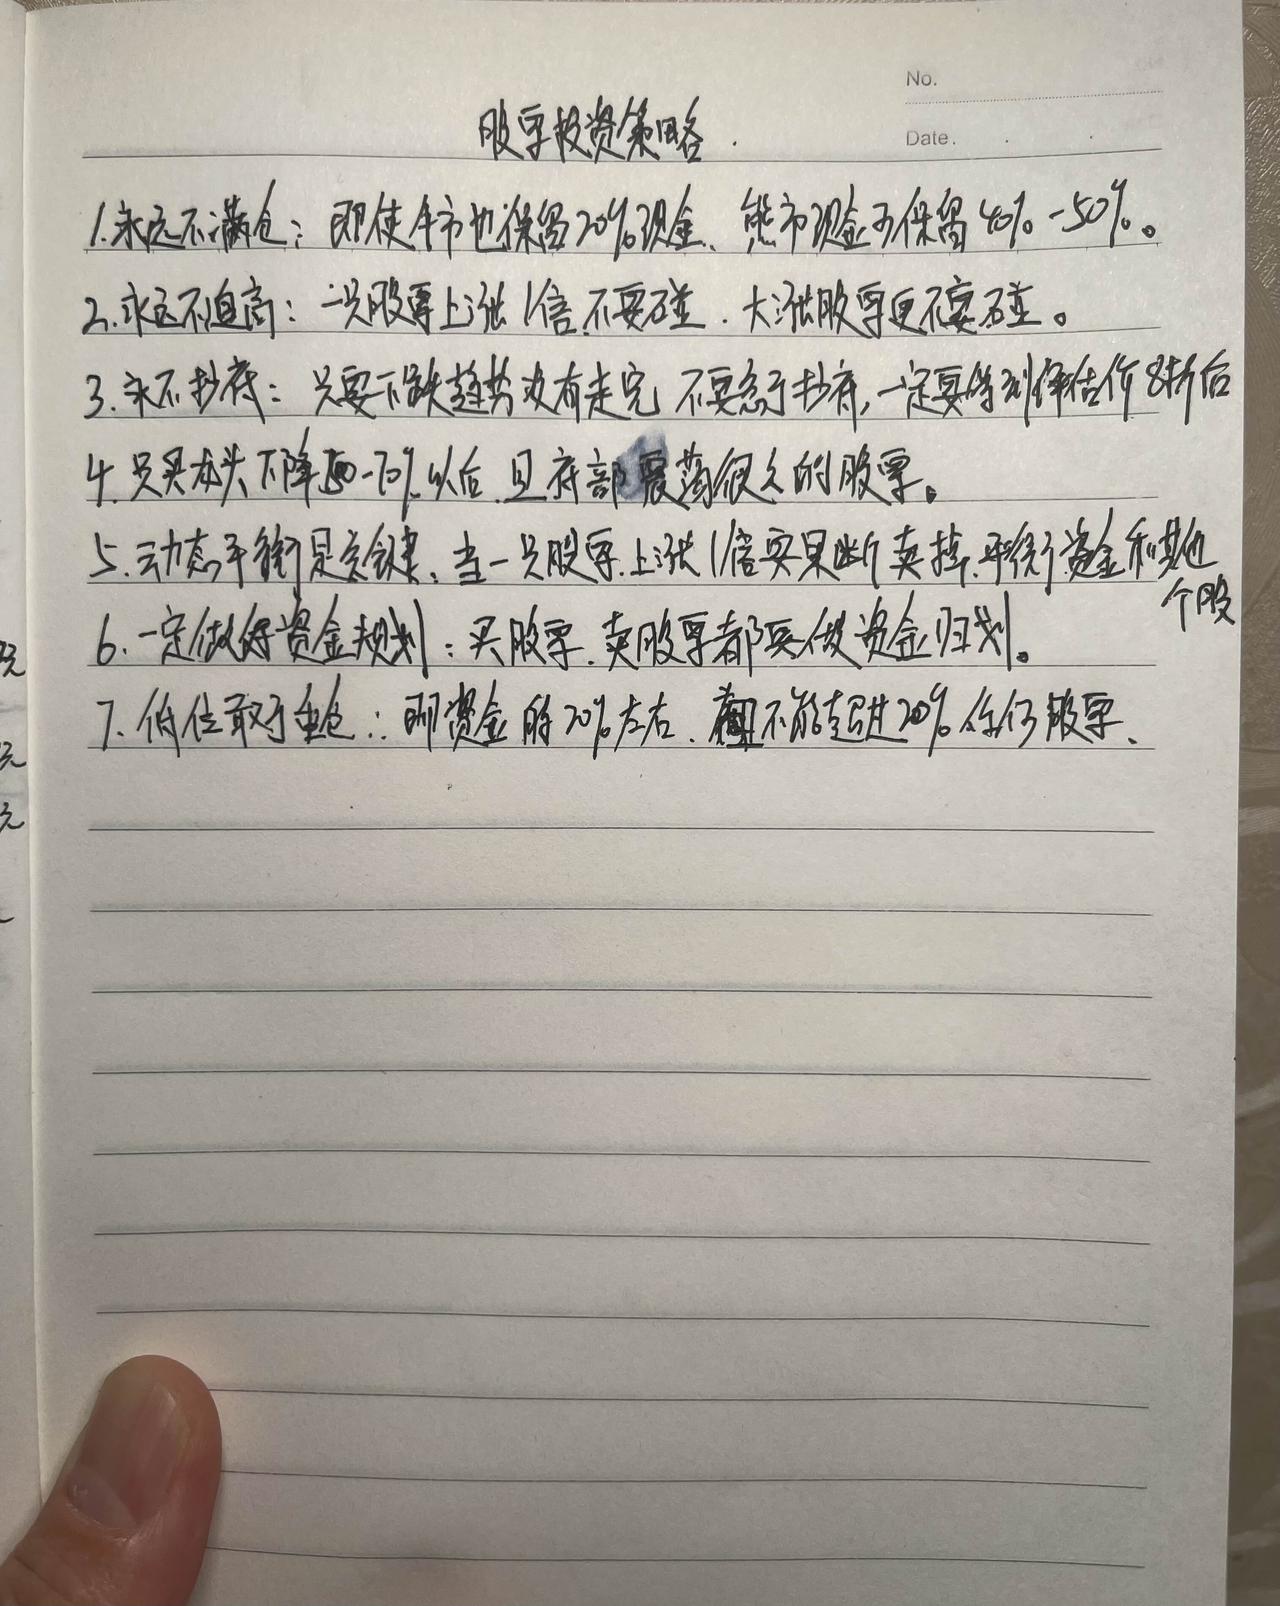 No.
Date.
股票投资策略.
1.永远不满仓：即使牛市也保留20%现金、熊市现金可保留40%-50%。
2.永远不追高：一只股票上涨1倍不要碰.大涨股票更不要碰。
3.永不抄底：只要下跌趋势没有走完 不要急于抄底,一定要等到估价8折后
4.只买龙头下降50-70%以后 且底部震荡很久的股票。
5.动态平衡是关键、当一只股票上涨1倍要果断卖掉.平衡资金和其他
个股
6.一定做好资金规划：买股票.卖股票都要做资金归划。
7.低位敢于重仓：即资金的20%左右.不能超过20%任何股票、
元
元
元